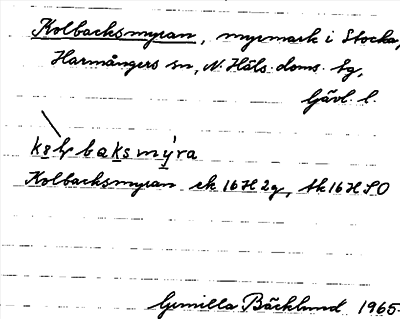 Kolbacksmyran, myrmark i Stocka,
Harmångers sn, N. Häls. doms. tg,
Gävl. l.
baksmýra
Kolbacksmyran ek 16H 2g, tk 16H SO
Gunilla Bäcklund 1965.